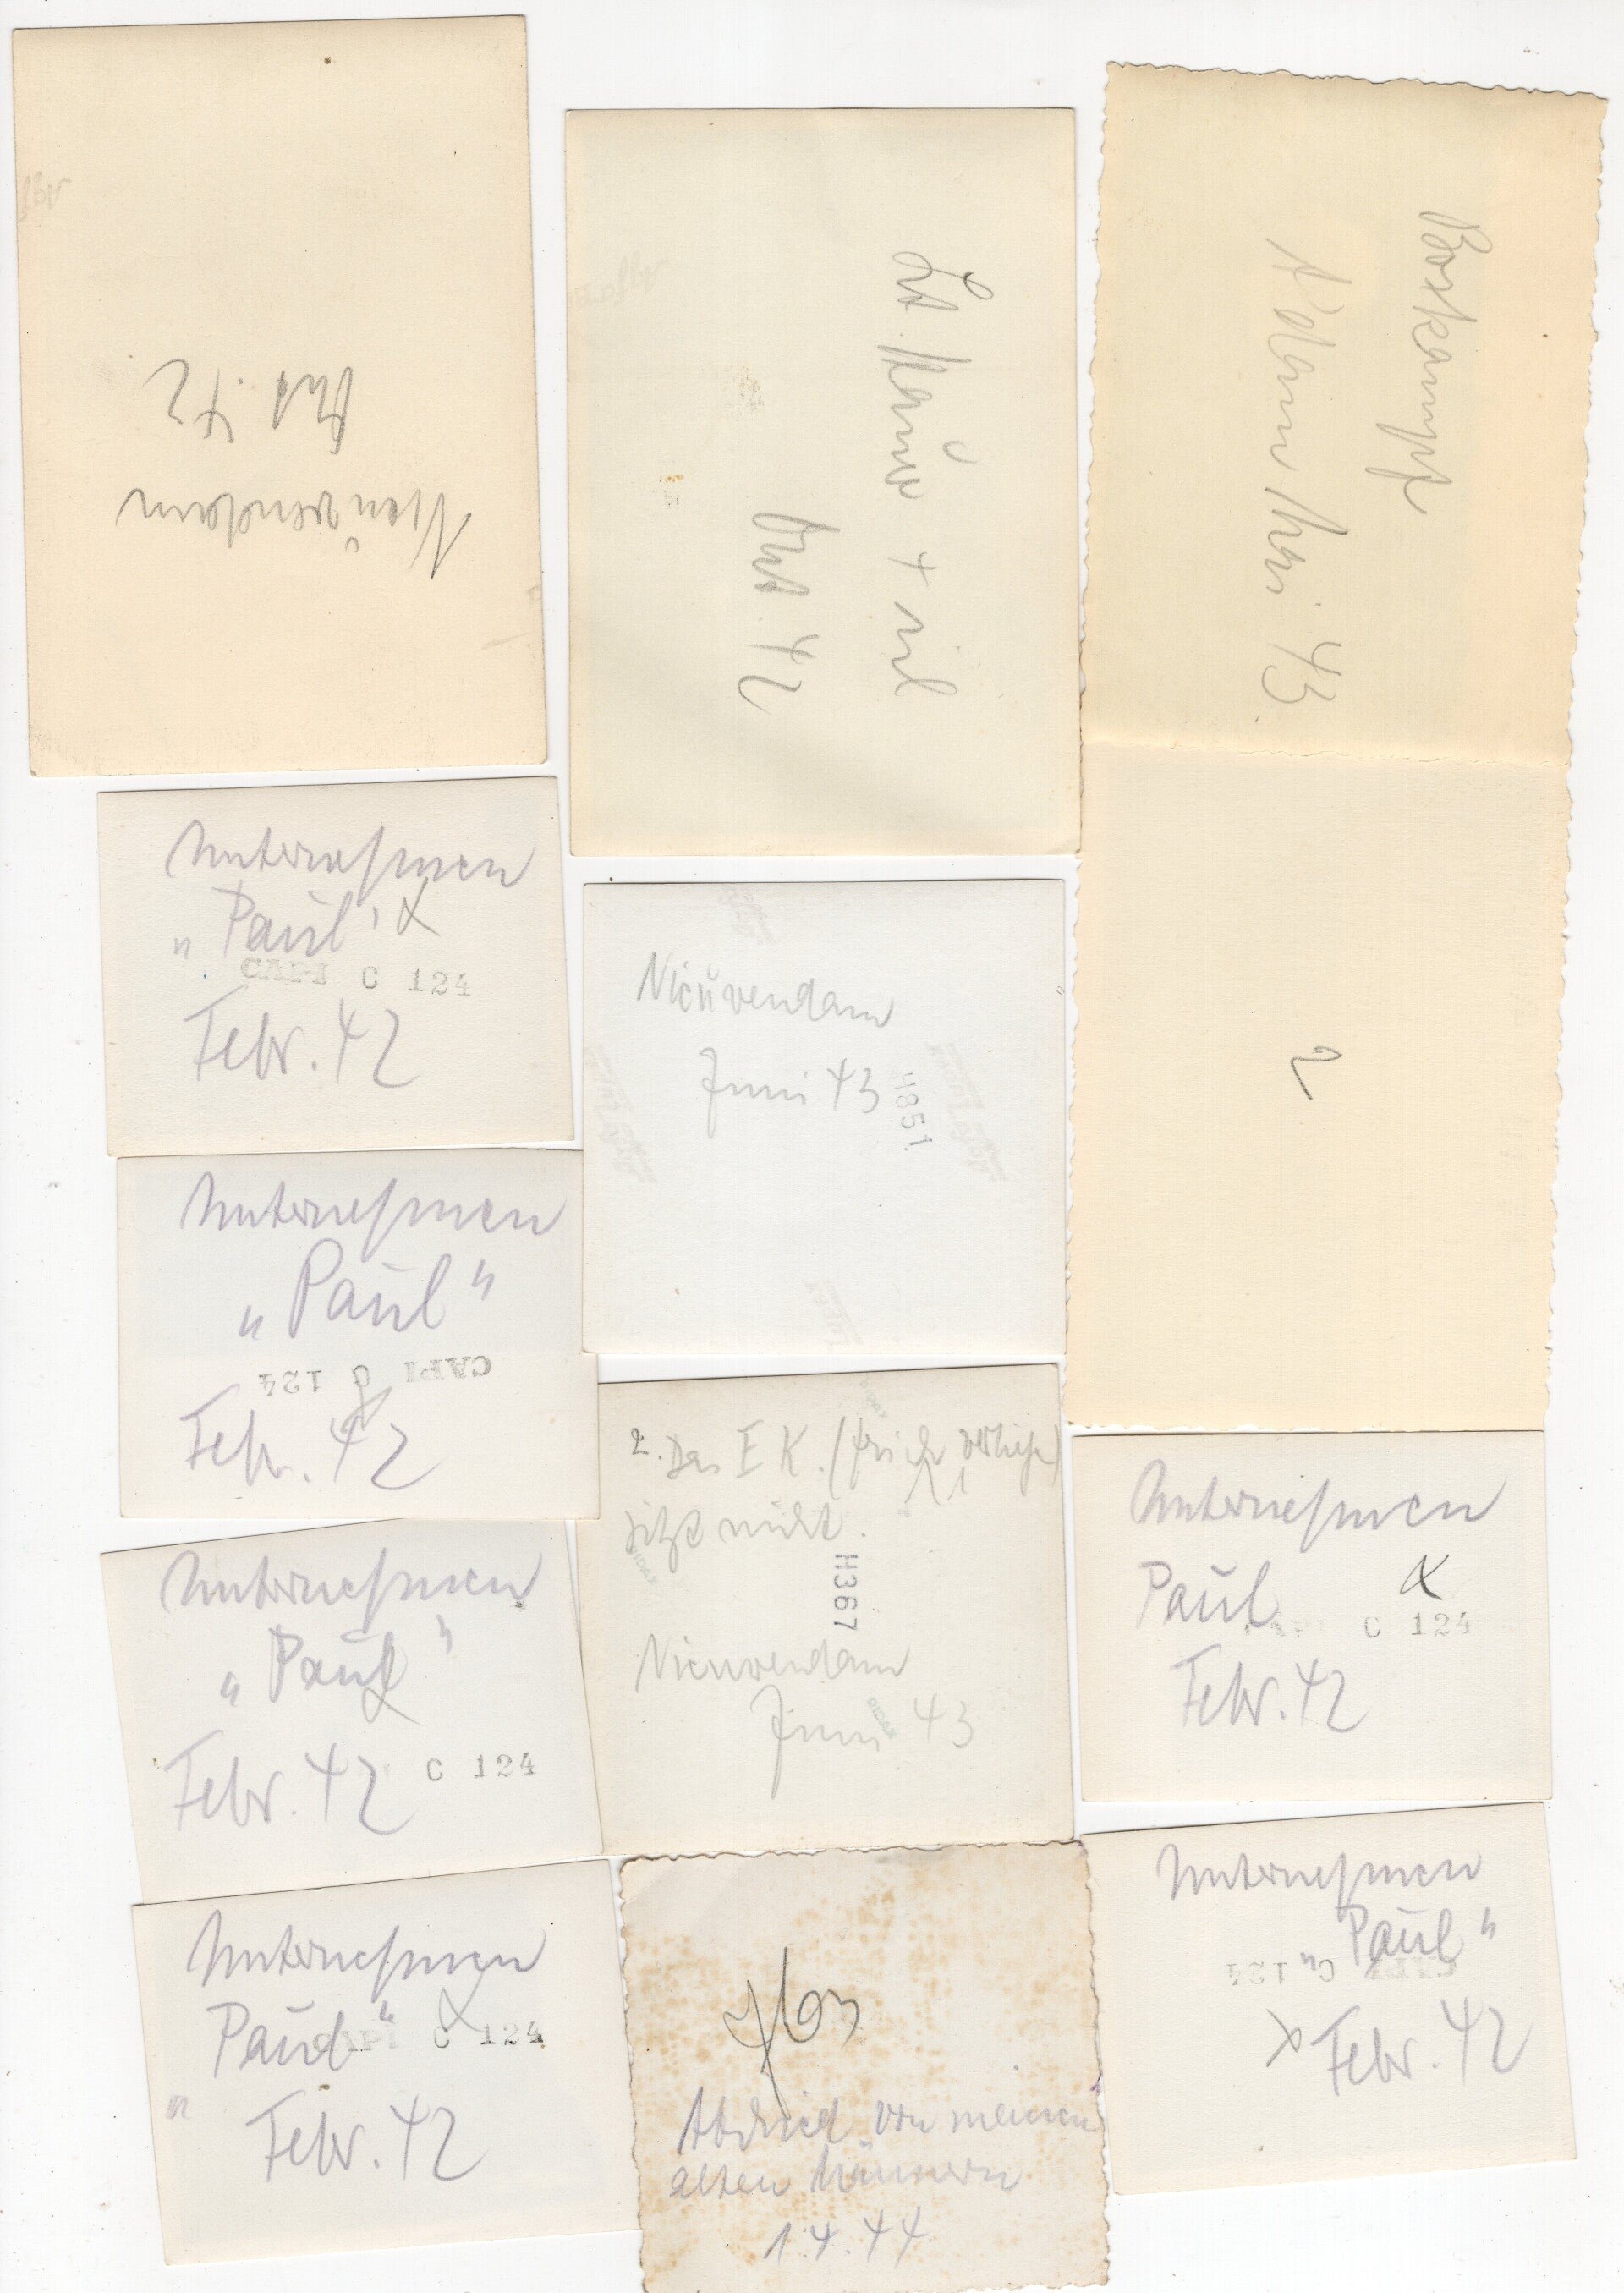 Nieuwendam
Okt. 42
Lt. Hamer + viel
Okt. 42
Boxkampf
A'dam Mai 43.
2
Unternehmen
„Paul"
CAPI C 124
Febr. 42
Unternehmen
„Paul"
CAPI C 124
Febr. 42
Unternehmen
„Paul"
C 124
Febr. 42
Unternehmen
„Paul"
CAPI C 124
Febr. 42
Nieuwendam
Juni 43
4851
2. Das E K. (frisch verliehen)
sitzt nicht.
H367
Nieuwendam
Juni 43
Abschied von meinen
alten Männern
1.4.44
Unternehmen
Paul
CAPI C 124
Febr. 42
Unternehmen
„Paul"
CAPI C 124
Febr. 42